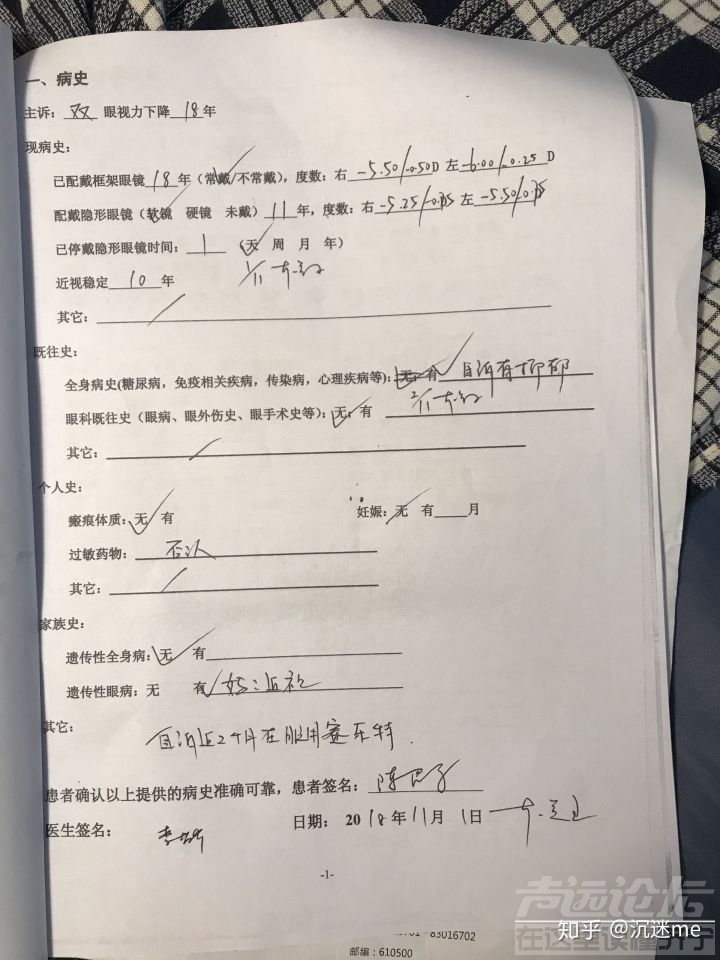 一、病史
主诉：双 眼视力下降 18 年
现病史：
已配戴框架眼镜 18 年（常戴/不常戴），度数：右 -5.50/-0.50D 左 -6.00/-0.25 D
配戴隐形眼镜（软镜 硬镜 未戴） 11 年，度数：右 -5.25/ 左 -5.50/
已停戴隐形眼镜时间： 1 （天 周 月 年）
近视稳定 10 年
其它：
既往史：
全身病史(糖尿病，免疫相关疾病，传染病，心理疾病等)：无；有 自诉有抑郁
眼科既往史（眼病、眼外伤史、眼手术史等）：无；有
其它：
个人史：
瘢痕体质：无 有 妊娠：无 有 月
过敏药物： 否认
其它：
家族史：
遗传性全身病：无 有
遗传性眼病：无 有 近视
其它：
自诉近2个月在服用赛乐特.
患者确认以上提供的病史准确可靠，患者签名： 陈
医生签名： 日期： 2018年11月 1日
-1-
83016702
邮编：610500
声远论坛
在这里读懂济宁
知乎 @沉迷me